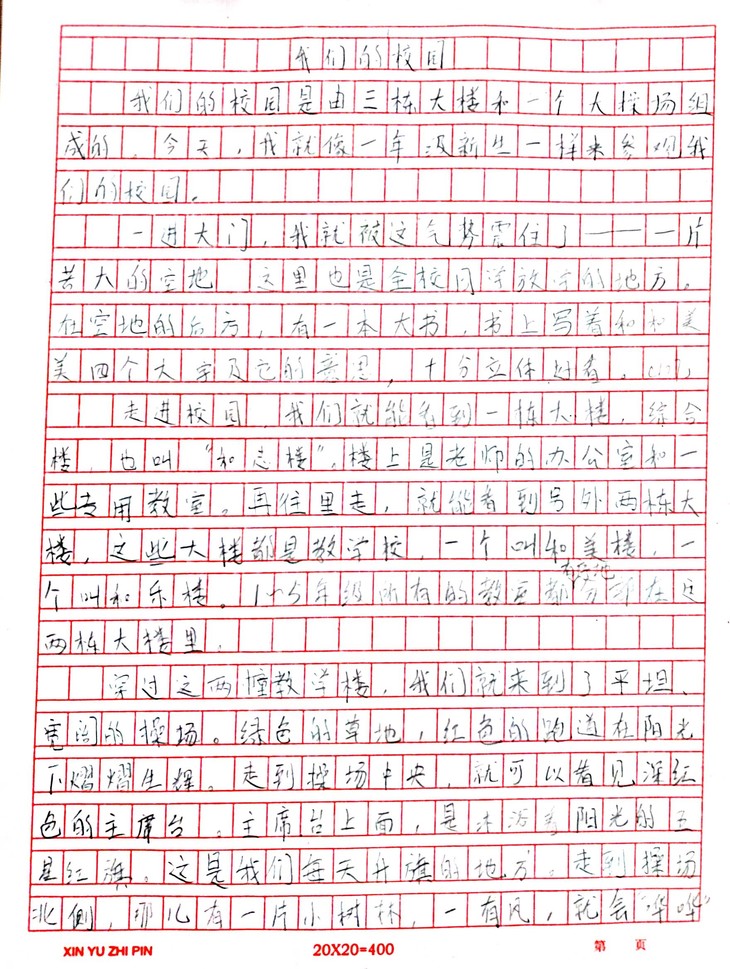 我们的校园
我们的校园是由三栋大楼和一个大操场组
成的。今天,我就像一年级新生一样来参观我
们的校园。
一进大门,我就被这气势震住了——一片
若大的空地 这里也是全校同学放学的地方。
在空地的后方,有一本大书,书上写着和和美
美四个大字及它的意思,十分立体
走进校园,我们就能看到一栋大楼,综合
楼,也叫“和志楼”,楼上是老师的办公室和一
些专用教室。再往里走,就能看到另外两栋大
楼,这些大楼都是教学校,一个叫和美楼,一
个叫和乐楼。1~5年级所有的教室都分布在这
两栋大楼里,
穿过这两幢教学楼,我们就来到了平坦、
宽阔的操场。绿色的草地,红色的跑道在阳光
下熠熠生辉。走到操场中央,就可以看见深红
色的主席台。主席台上面,是沐浴着阳光的五
星红旗。这是我们每天升旗的地方。走到操场
北侧,那儿有一片小树林,一有风,就会“哗哗”
XIN YU ZHI PIN
20X20=400
第 页